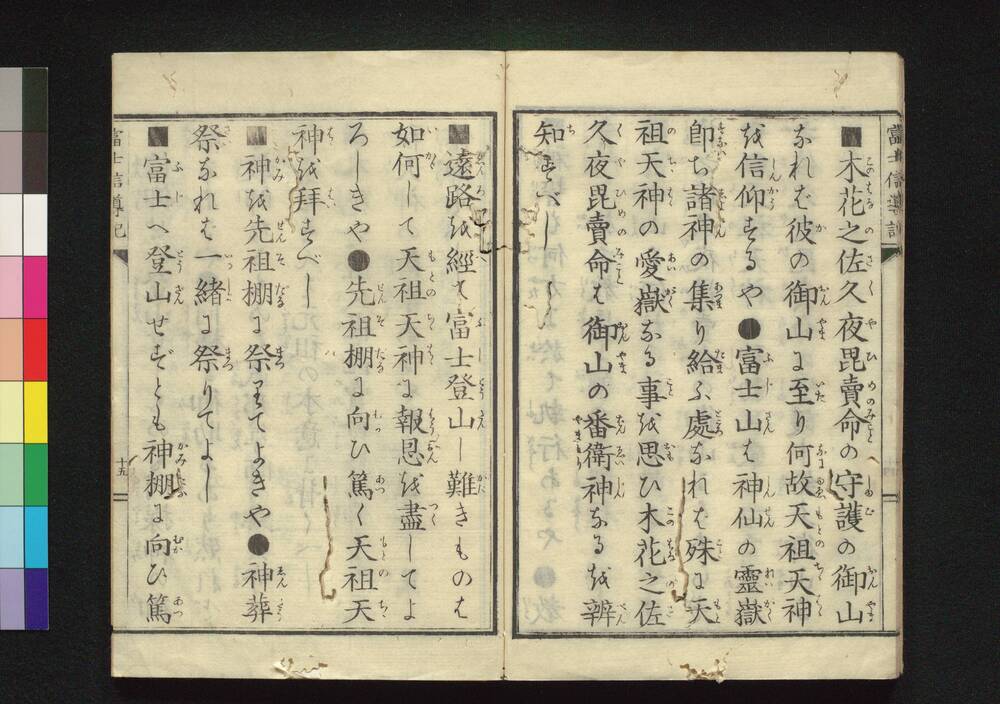 ■木花之佐久夜毘賣命の守護の御山
なれば彼の御山に至り何故天祖天神
を信仰するや●富士山は神仙の靈嶽
卽ち諸神の集り給ふ處なれば殊に天
祖天神の愛嶽なる事を思ひ木花之佐
久夜毘賣命は御山の番衛神なるを辨
知すべし
■遠路を經て富士登山し難きものは
如何して天祖天神に報恩を盡してよ
ろしきや●先祖棚に向ひ篤く天祖天
神を拜すべし
■神を先祖棚に祭りてよきや●神葬
祭なれば一緒に祭りてよし
■富士へ登山せずとも神棚に向ひ篤
富士信導記
十五